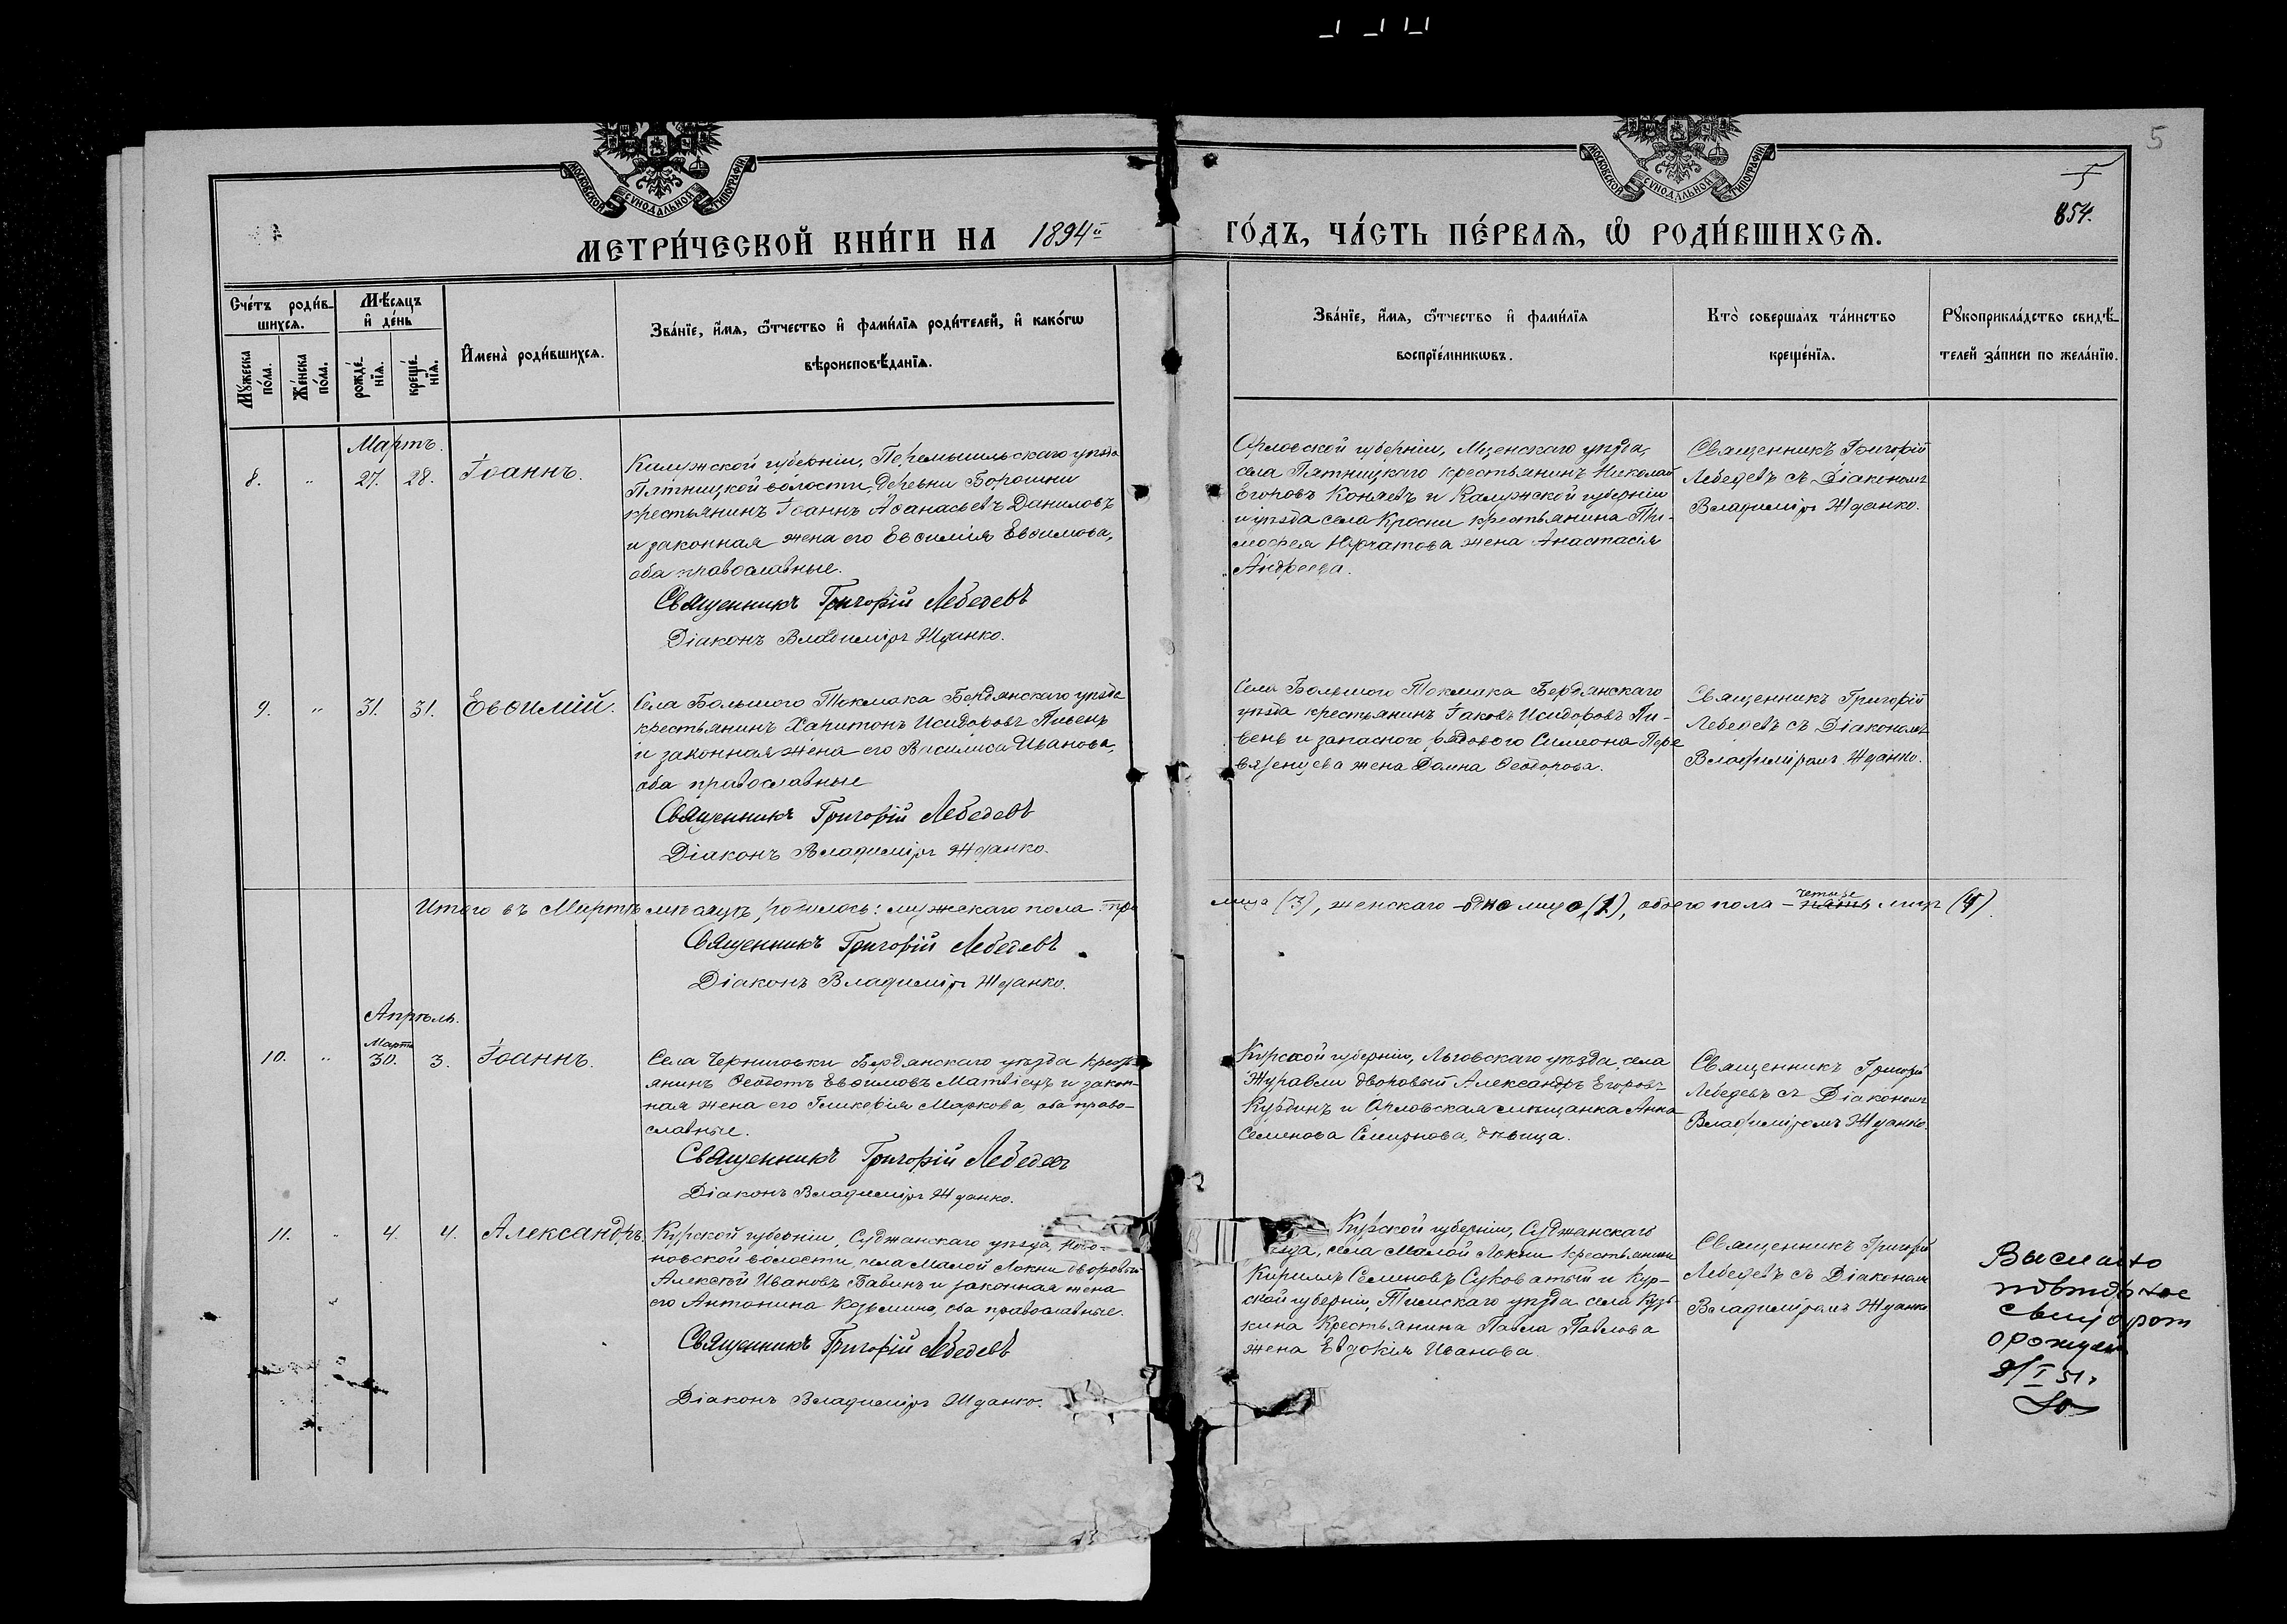 5
5
854.
МОСКОВСКОЙ СУНОДАЛЬНОЙ ТИПОГРАФІИ
МОСКОВСКОЙ СУНОДАЛЬНОЙ ТИПОГРАФІИ
МЕТРИ́ЧЕСКОЙ КНИ́ГИ НА 1894й ГО́ДЪ, ЧА́СТЬ ПЕ́РВАѦ, Ѡ РОДИ́ВШИХСѦ.
Сче́тъ роди́в-
шихсѧ.
Мꙋжеска по́ла.
Же́нска по́ла.
Мѣ́сѧцъ и де́нь
рожде́-
нїѧ.
креще́-
нїѧ.
Имена̀ роди́вшихсѧ.
Зва́нїе, и́мѧ, ѻ́тчество и фами́лїѧ роди́телей, и како́гѡ
вѣроисповѣ́данїѧ.
Зва́нїе, и́мѧ, ѻ́тчество и фами́лїѧ
воспрїе́мникѡвъ.
Кто̀ соверша́лъ та́инство
креще́нїѧ.
Рꙋкоприкла́дство свидѣ́-
телей за́писи по жела́нїю.
Мартъ.
8. " 27. 28. Іоаннъ.
Калужской губерніи, Перемышльскаго уѣзда
Пятницкой волости, деревни Борошни
крестьянинъ Іоаннъ Аѳанасьевъ Даниловъ
и законная жена его Евѳимія Евѳимова,
оба православные.
Священникъ Григорій Лебедевъ
Діаконъ Владиміръ Жданко.
Орловской губерніи, Мценскаго уѣзда,
села Пятницкаго крестьянинъ Николай
Егоровъ Коняевъ и Калужской губерніи
и уѣзда села Кросни крестьянина Ти-
моѳея жена Анастасія
Андреева.
Священникъ Григорій
Лебедевъ съ Діакономъ
Владиміръ Жданко.
9. " 31. 31. Евѳимій.
Села Большого Токмака Бердянскаго уѣзда
крестьянинъ Харитонъ Исидоровъ Пивень
и законная жена его Василиса Иванова,
оба православные
Священникъ Григорій Лебедевъ
Діаконъ Владиміръ Жданко.
Села Большого Токмака Бердянскаго
уѣзда крестьянинъ Іаковъ Исидоровъ Пи-
вень и запасного рядового Симеона Пере
вязенцева жена Домна Ѳеодорова.
Священникъ Григорій
Лебедевъ съ Діакономъ
Владиміромъ Жданко.
Итого въ Мартѣ мѣсяцѣ родилось: мужескаго пола три лица (3), женскаго - одно лицо (1), обоего пола - пять четыре лицъ (4).
Священникъ Григорій Лебедевъ
Діаконъ Владиміръ Жданко.
Апрѣль.
Марта
10. " 30. 3. Іоаннъ.
Села Черниговки Бердянскаго уѣзда крест
янинъ Ѳеодотъ Евѳимовъ Матвіецъ и закон-
ная жена его Гликерія Маркова, оба право-
славные.
Священникъ Григорій Лебедевъ
Діаконъ Владиміръ Жданко.
Курской губерніи, Льговскаго уѣзда, села
Журавли дворовый Александръ Егоровъ
Курдинъ и Орловская мѣщанка Анна
Семенова Смирнова, дѣвица.
Священникъ Григорій
Лебедевъ съ Діакономъ
Владиміромъ Жданко.
11. " 4. 4. Александръ.
Курской губерніи, Суджанскаго уѣзда,
новской волости, села Малой Локни дворовый
Алексѣй Ивановъ Бабинъ и законная жена
его Антонина Козьмина, оба православные.
Священникъ Григорій Лебедевъ
Діаконъ Владиміръ Жданко.
Курской губерніи, Суджанскаго
ѣзда, села Малой Локни крестьянинъ
Кириллъ Семеновъ Суковатый и Кур-
ской губерніи, Тимскаго уѣзда села Кузь
кина Крестьянина Павла Павлова
жена Евдокія Иванова.
Священникъ Григорій
Лебедевъ съ Діакономъ
Владиміромъ Жданко
Выслано
повторное
о рожден
8/I 51г